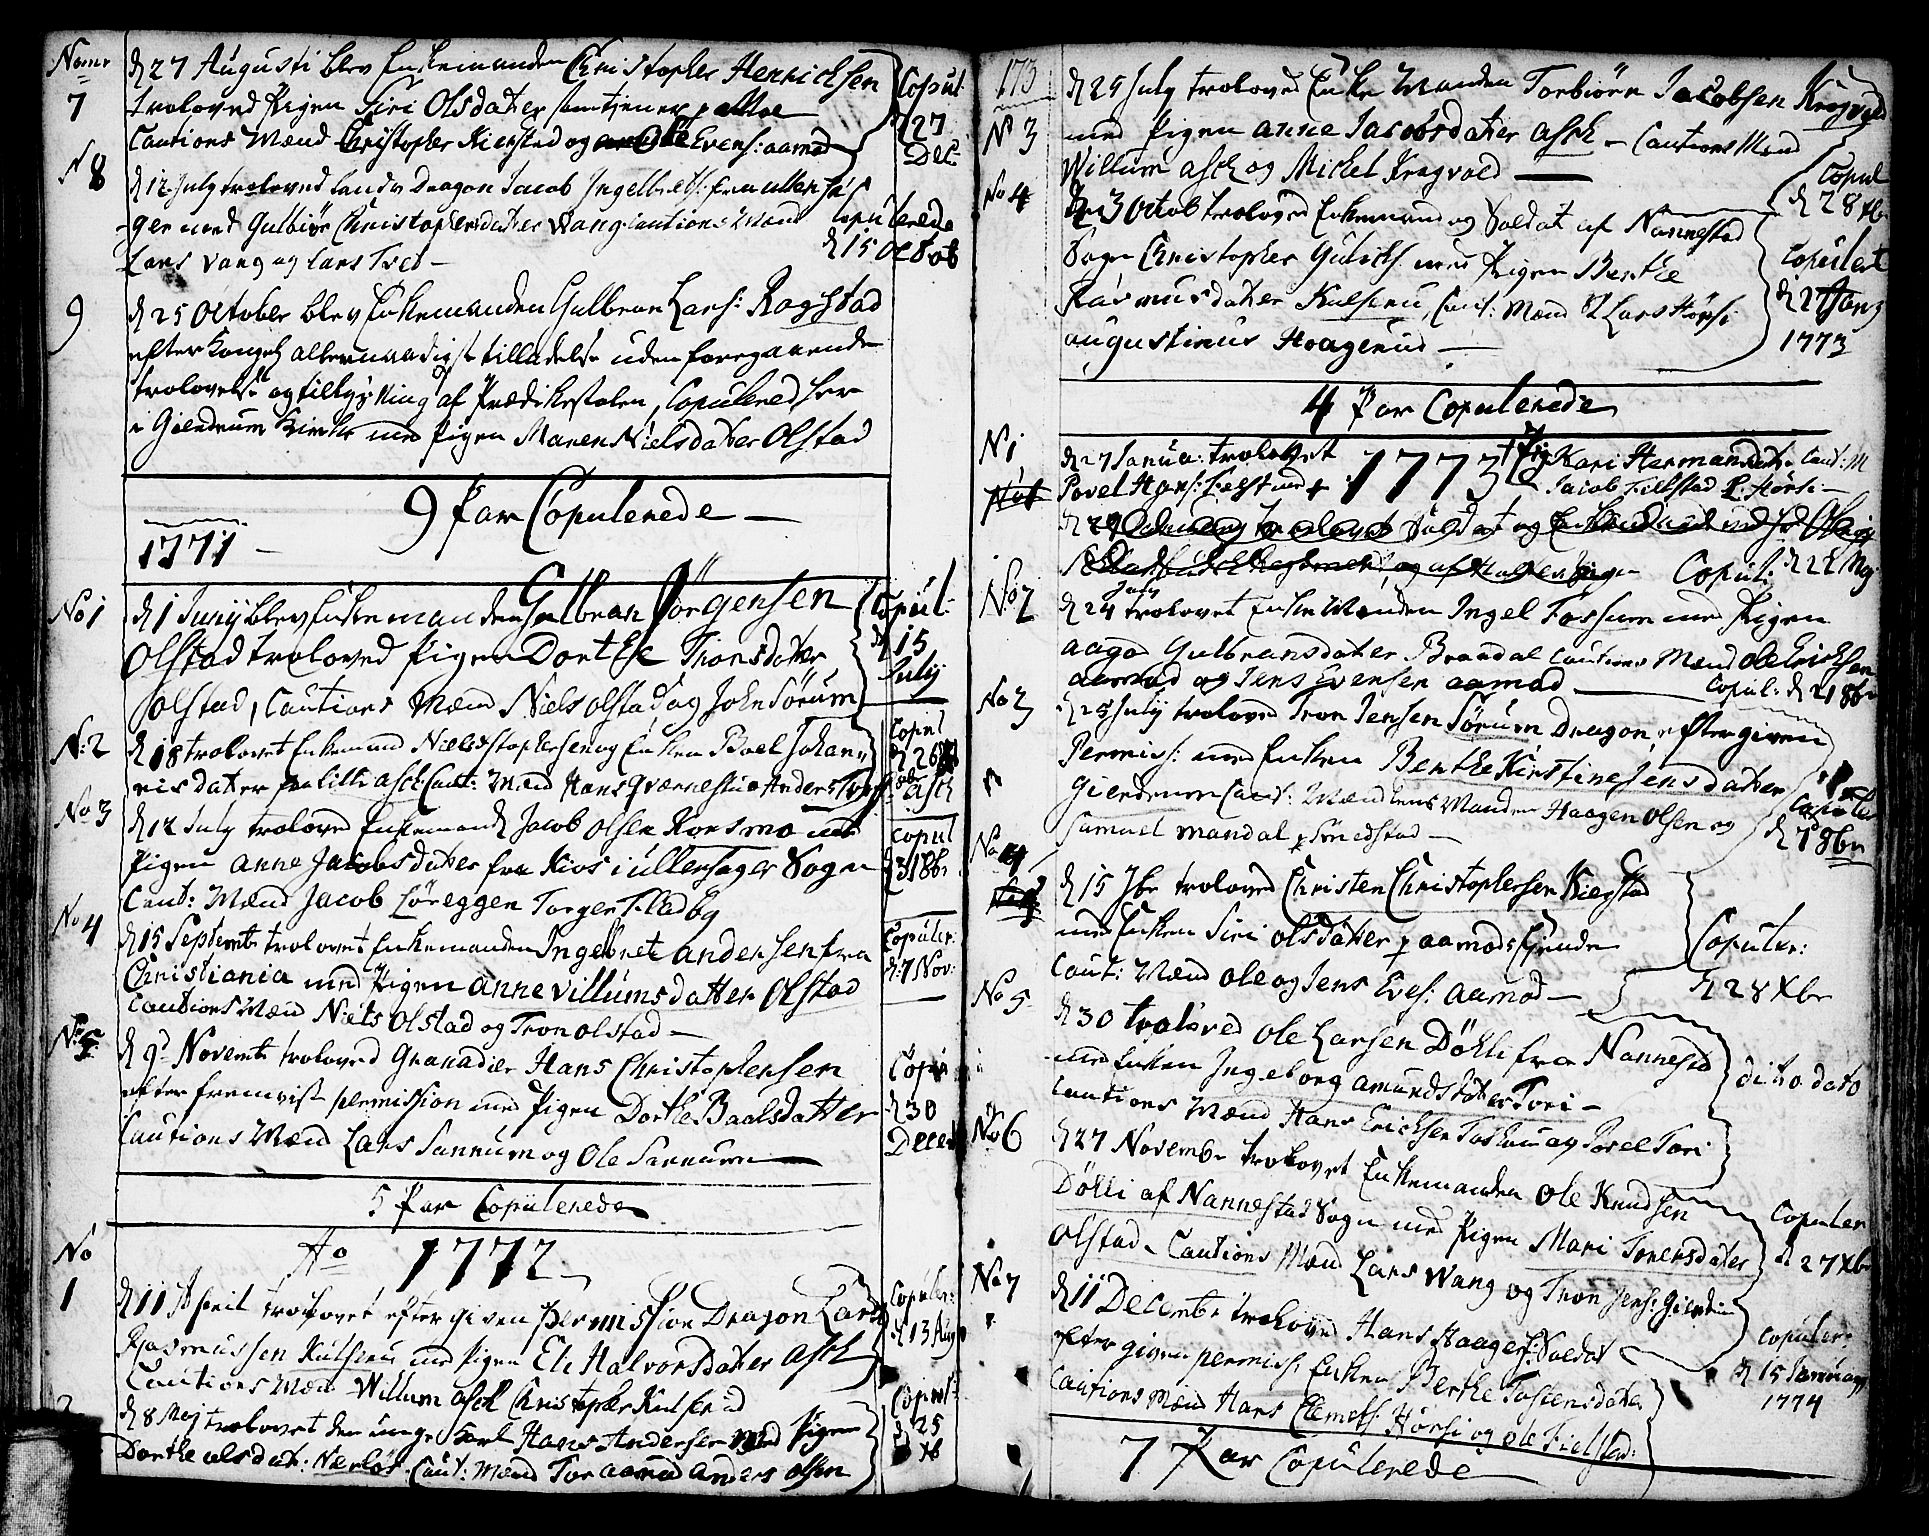 Nomr
7
d 27 Augusti blev Enkemanden Christopher Henrichsen
troloved Pigen Siri Olsdater
Cautions Mænd Christopher Kierstad og Ole Evens: aamod
Copul
27
Dec
N 8
d 12 July troloved Land Dragon Jacob Ingelbrets: fra ullensa/
ger med Gulbiør Christophersdater Wang Cautions Mænd
Lars Vang og Lars Tved
Copulerede
d 15 Octob
9
d 25 October blev Enkemanden Gulbran Lars: Rogstad
efter Kongel allernaadigst tilladelse uden foregaaende
trolovelse og tillysning af Prædikestolen, Copulered her
i Gierdrum Kirke med Pigen Maren Nielsdater Olstad
9 Par Copulerede
1771
No 1
d 1 Junij blev Enkemanden Gulbran Jørgensen
Olstad troloved Pigen Dorthe Tronsdater
Olstad, Cautions Mænd Niels Olstad og John Sørum
Copul:
d 15
Julij
N: 2
d 18 trolovet Enkemand Niels Stophersen og Enken Boel Johan
nisdater fra lille asch Caut: Mænd Hans Qvernestu Anders
Copul
d 26
asch
No 3
d 12 July troloved Enkemand Jacob Olsen Korsmo med
Pigen anne Jacobsdater fra Kios i ullensager Sogn
Caut: Mænd Jacob Løreggen Torger Fladby
Copul
d 31 8br
No 4
d 15 Septembr trolovet Enkemanden Ingebret andersen fra
Christiania med Pigen anne Villumsdatter Olstad
Cautions Mænd Niels Olstad og Tron olstad
Copuler:
d: 7 Nov:
No: 5
d 9d Novembr troloved Granadier Hans Christophersen
efter fremvist permission med Pigen Dorthe Baalsdatter
Cautions Mænd Lars Sannum og Ole Sannum
Copu
d 30
Decem
5 Par Copulerede
No
Ao 1772
1
d 11 April trolovet efter given permission Dragon Lars
Rasmussen Kulsrud med Pigen Eli Halvorsdater Asch
Cautions Mæn Willum asch Christopher Kulsrud
Copuler:
d 13 Aug
2
d 8 Maj trolovet den unge Karl Hans Andersen med Pigen
Dorthe olsdat: Nerløs. Caut: Mænd Tor aamod anders olsen
Copul:
d 25
xb
173
N 3
d 29 July troloved Enke Manden Torbiørn Jacobsen Krogvold
med Pigen anne Jacobsdater asch Cautions Mænd
Willum asch og Michel Krogvold
Copul
d 28 xbr
No 4
d 3 Octob troloved Enkemand og Soldat af Nannestad
Sogn Christopher Gulichs: med Pigen Berthe
Rasmusdater Kulsrud, Caut: Mænd Lars Hørsi
augustinus Haagerud
Copulert
d 27 Janv
1773
4 Par Copulerede
N 1
d 27 Janua: trolovet
Povel Hans: Field med +
1773
+ Pig Kari Hermansdat Caut: M
Jacob Fieldstad L Hørsi
Copul: d 28 Maj
No 2
d 24 July trolovet Enke Manden Ingel Fossum med Pigen
aaga Gulbransdater Brandal Cautions Mænd Ole Erichsen
aamod og Jens Evensen aamod
Copul: d 21 8br
No 3
d 25 Julij troloved Tron Jensen Sørum Dragon, efter given
Permiss: med Enken Berthe Kirstine Jensdater
Gierdrum Caut: Mænd Lens Manden Haagen Olsen og
Samuel Mandal p Smedstad
Copuler
d 7 8br
No 4
d 15 7br troloved Christen Christophersen Kierstad
med Enken Siri Olsdater p aamods Eiende
Caut: Mænd Ole og Jens Eves: aamod
Copuler:
d 28 xbr
No 5
d 30 troloved Ole Larsen Døhli fra Nannestad
med Enken Ingeborg Amundsdater Tori
Cautions Mænd Hans Erichsen Foshaug Povel Tori
dito dato
No 6
d 27 Novembr trolovet Enkemanden Ole Knudsen
Døhli af Nannestad Sogn med Pigen Mari Torersdater
Olstad. Cautions Mænd Lars Wang og Tron Jens: Gierdrum
Copuler
d 27 xbr
No 7
d 11 Decembr troloved Hans Haagens: Soldat
efter given permiss: Enken Berthe Tostensdater
Cautions Mænd Hans Clemets: Hørsi og Ole Fielstad:
Copuler:
d 15 Januarij
1774
7 Par Copulerede